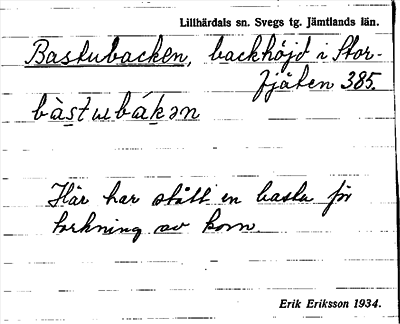 Lillhärdals sn. Svegs tg. Jämtlands län.
Bastubacken, backhöjd i Stor-
fjäten 385.
bàstɯbákən
Här har stått en bastu för
torkning av korn.
Erik Eriksson 1934.